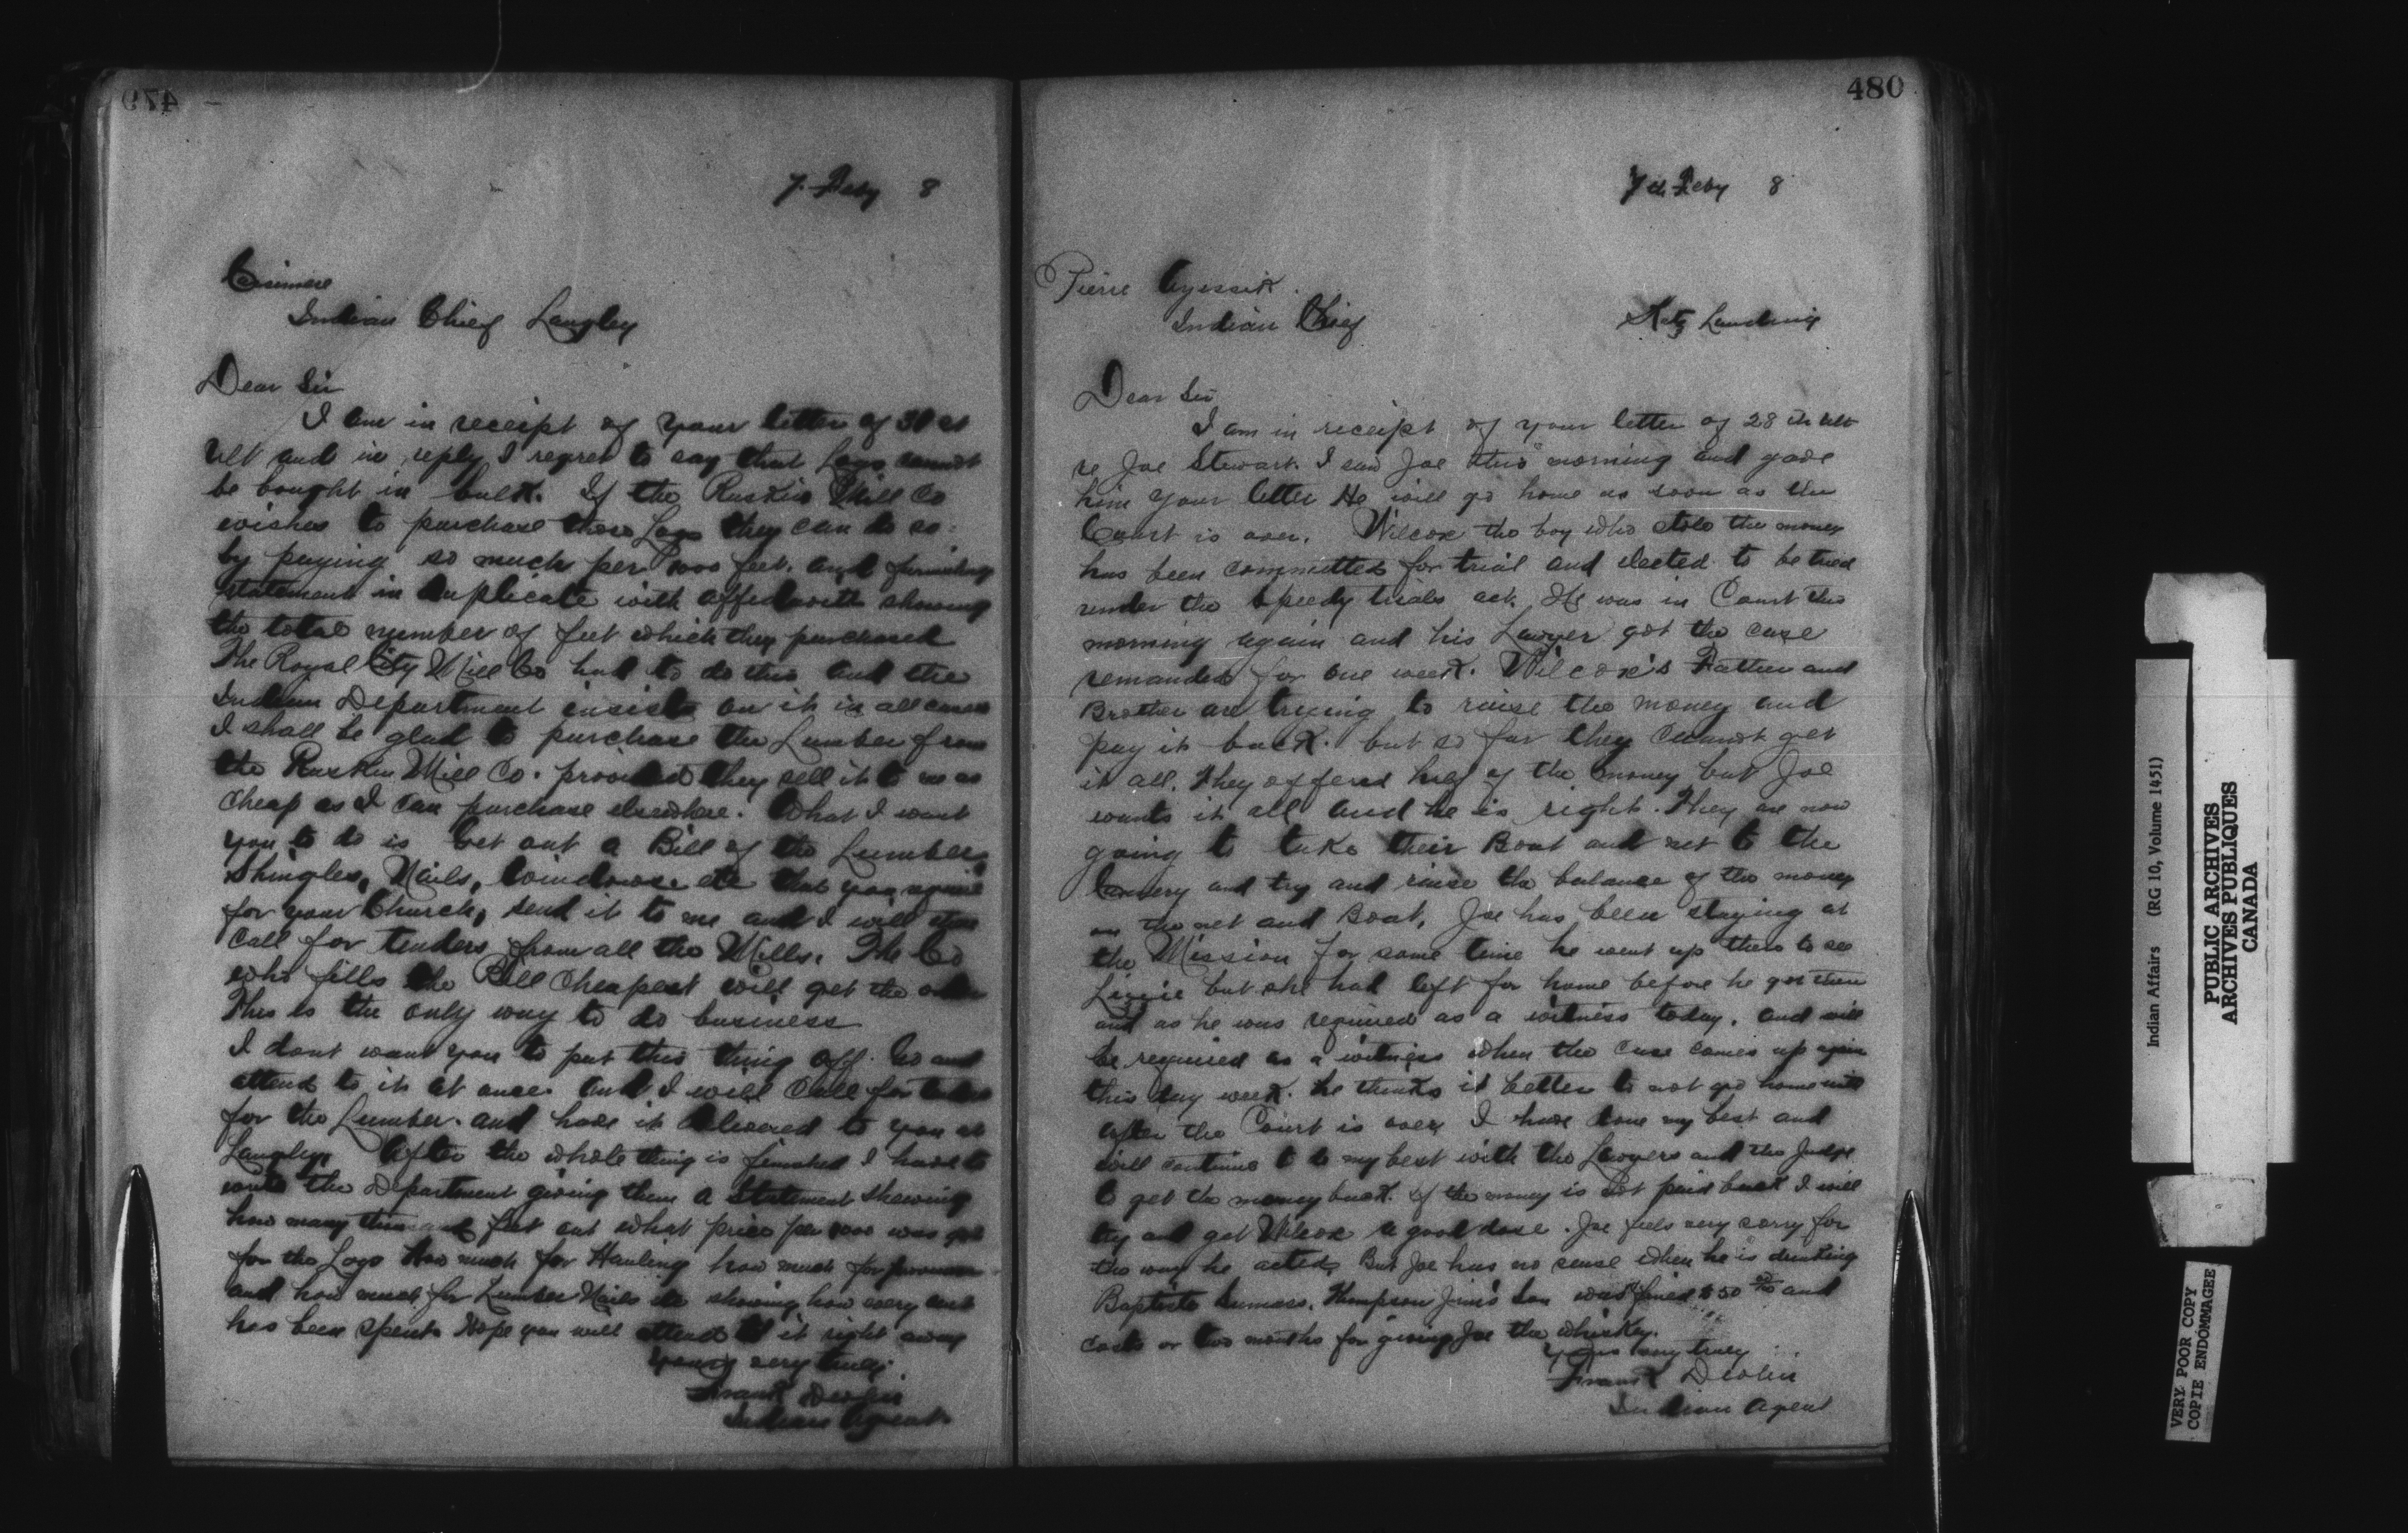 479
7 Feby 8
Casimere
Indian Chief Langley
Dear Sir
I am in receipt of your letter of 31st
Ult and in reply I regret to say that Logs cannot
be bought in bulk. If the Ruskin Mill Co
wishes to purchase these Logs they can do so
by paying so much per 1000 feet. and furnishing
statement in duplicate with affidavits showing
the total number of feet which they purchased
The Royal City Mill Co had to do this and the
Indian Department insists on it in all cases
I shall be glad to purchase the Lumber from
the Ruskin Mill Co. provided they sell it to me as
Cheap as I can purchase elsewhere. What I want
you to do is Get out a Bill of the Lumber,
Shingles, Nails, Windows etc that you require
for your Church, send it to me and I will then
Call for tenders from all the Mills. The Co
who fills the Bill Cheapest will get the order
This is the only way to do business
I dont want you to put this thing off. Go and
attend to it at once and I will Call for tenders
for the Lumber. and have it delivered to you at
Langley. After the whole thing is finished I have to
write the Department giving them a Statement Shewing
how many thousand feet and what price per 1000 was got
for the Logs How much for Hauling how much for
and how much for Lumber Nails etc showing how every cent
has been spent. Hope you will attend to it right away
Yours very truly
Frank Devlin
Indian Agent
480
7th Feby 8
Pierre Ayessik.
Indian Chief
Katz Landing
Dear Sir
I am in receipt of your letter of 28th Ult
re Joe Stewart. I saw Joe this morning and gave
him your letter He will go home as soon as the
Court is over. Wilcox the boy who stole the money
has been committed for trial and elected to be tried
under the Speedy trials act. He was in Court this
morning again and his Lawyer got the case
remanded for one week. Wilcox's Father and
Brother are trying to raise the money and
pay it back. but so far they cannot get
it all. They offered half of the money but Joe
wants it all and he is right. They are now
going to take their Boat and net to the
Cannery and try and raise the balance of the money
on the net and Boat. Joe has been staying at
the Mission for some time he went up there to see
Lizzie but she had left for home before he got there
and as he was required as a witness today. and will
be required as a witness when the case comes up again
this day week. he thinks it better to not go home until
after the Court is over I have done my best and
will continue to do my best with the Lawyers and the Judge
to get the money back. If the money is not paid back I will
try and get Wilcox a good dose. Joe feels very sorry for
the way he acted, But Joe has no sense when he is drinking
Baptiste Sumass, Thompson Jim's Son was fined $50 00/100 and
costs or two months for giving Joe the whiskey.
Yours very truly
Frank Devlin
Indian Agent
Indian Affairs (RG 10, Volume 1451)
PUBLIC ARCHIVES
ARCHIVES PUBLIQUES
CANADA
VERY POOR COPY
COPIE ENDOMMAGEE